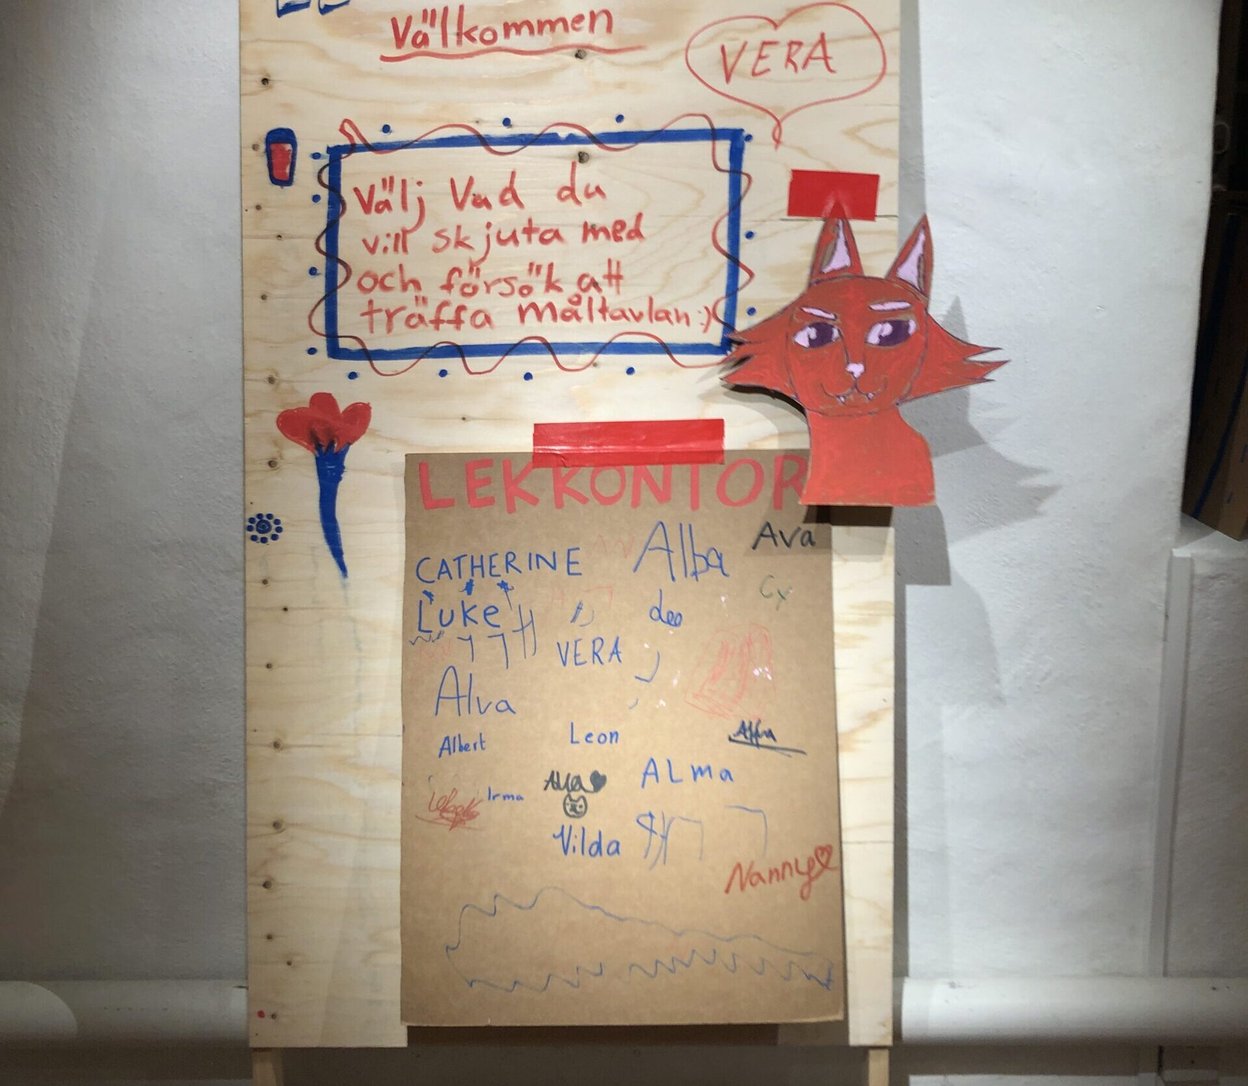 Välkommen
VERA
Välj Vad du
vill skjuta med
och försök att
träffa måltavlan :)
LEKKONTOR
CATHERINE Alba Ava
Luke
VERA
Alva
Albert Leon
ALma
Irma
Vilda
Nanny